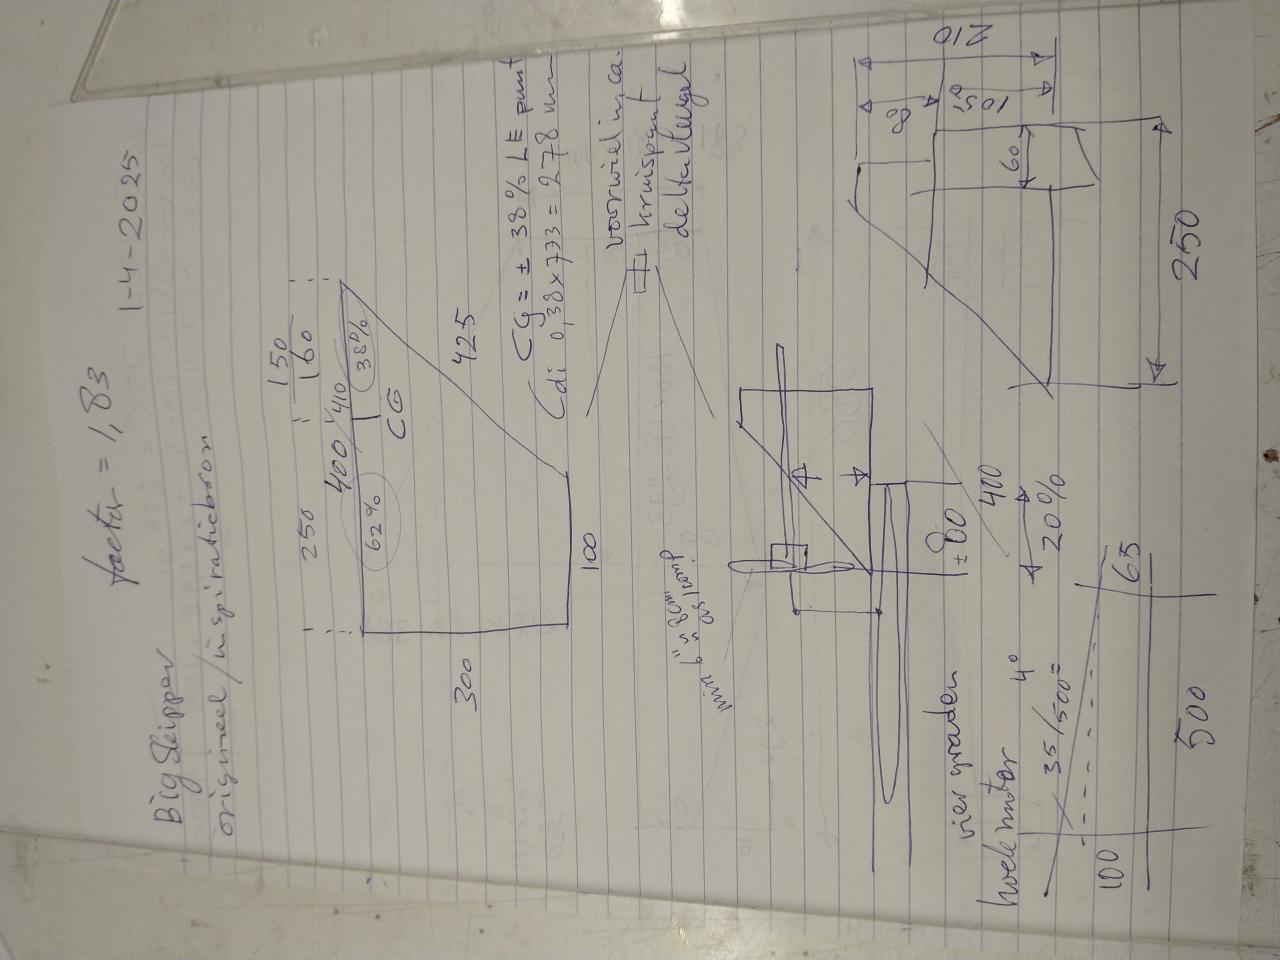 factor = 1,83
1-4-2025
Big Skipper
origineel / inspiratiebron
250
150
160
400 / 410
62%
38%
CG
425
300
100
CG = ± 38% LE punt
(di 0,38 x 773 = 278 mm
voorwiel in, ca.
kruispunt
deltavleugel
min 6" "
± 80
400
20%
vier graden
hoek motor 4°
35/500 =
65
100
500
210
105
60
250